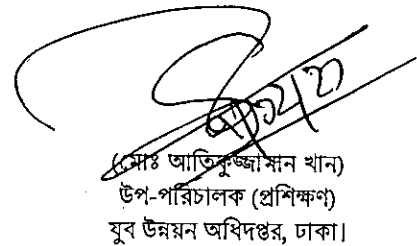 (মোঃ আতিকুজ্জামান খান)
উপ-পরিচালক (প্রশিক্ষণ)
যুব উন্নয়ন অধিদপ্তর, ঢাকা।